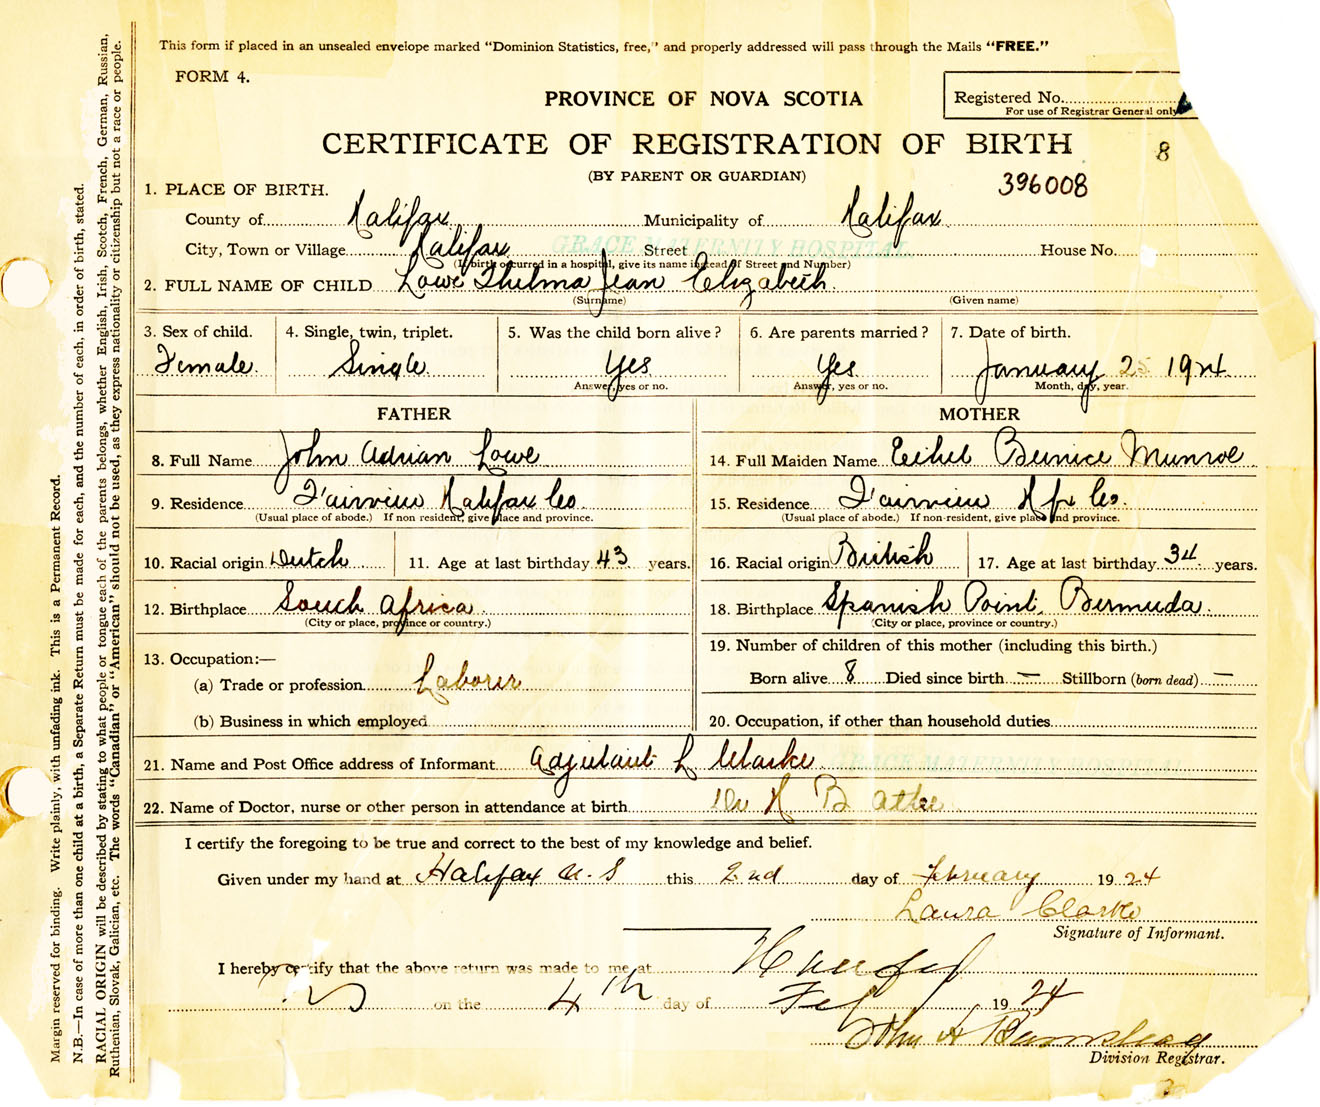 This form if placed in an unsealed envelope marked "Dominion Statistics, free," and properly addressed will pass through the Mails "FREE."
FORM 4.
PROVINCE OF NOVA SCOTIA
Registered No.
For use of Registrar General only
CERTIFICATE OF REGISTRATION OF BIRTH
8
(BY PARENT OR GUARDIAN)
396008
1. PLACE OF BIRTH.
County of Halifax Municipality of Halifax
City, Town or Village Halifax Street GRACE MATERNITY HOSPITAL House No.
(If birth occurred in a hospital, give its name instead of Street and Number)
2. FULL NAME OF CHILD Lowe Thelma Jean Elizabeth
(Surname) (Given name)
3. Sex of child. 4. Single, twin, triplet. 5. Was the child born alive? 6. Are parents married? 7. Date of birth.
Female Single Yes Yes January 25 1924
Answer, yes or no. Answer, yes or no. Month, day, year.
FATHER MOTHER
8. Full Name John Adrian Lowe 14. Full Maiden Name Ethel Bernice Munroe
9. Residence Fairview Halifax Co. 15. Residence Fairview Hfx Co.
(Usual place of abode.) If non resident, give place and province. (Usual place of abode.) If non-resident, give place and province.
10. Racial origin Dutch 11. Age at last birthday 43 years. 16. Racial origin British 17. Age at last birthday 34 years.
12. Birthplace South Africa 18. Birthplace Spanish Point, Bermuda.
(City or place, province or country.) (City or place, province or country.)
13. Occupation:— 19. Number of children of this mother (including this birth.)
(a) Trade or profession Laborer Born alive 8 Died since birth — Stillborn (born dead) —
(b) Business in which employed 20. Occupation, if other than household duties
21. Name and Post Office address of Informant Adjutant L Clarke GRACE MATERNITY HOSPITAL
22. Name of Doctor, nurse or other person in attendance at birth Dr H B Atlee
I certify the foregoing to be true and correct to the best of my knowledge and belief.
Given under my hand at Halifax N.S this 2nd day of February 1924
Laura Clarke
Signature of Informant.
I hereby certify that the above return was made to me at
on the 4th day of Feb 1924
John A
Division Registrar.
Margin reserved for binding. Write plainly, with unfading ink. This is a Permanent Record.
N.B.—In case of more than one child at a birth, a Separate Return must be made for each, and the number of each, in order of birth, stated.
RACIAL ORIGIN will be described by stating to what people or tongue each of the parents belongs, whether English, Irish, Scotch, French, German, Russian,
Ruthenian, Slovak, Galician, etc. The words "Canadian" or "American" should not be used, as they express nationality or citizenship but not a race or people.